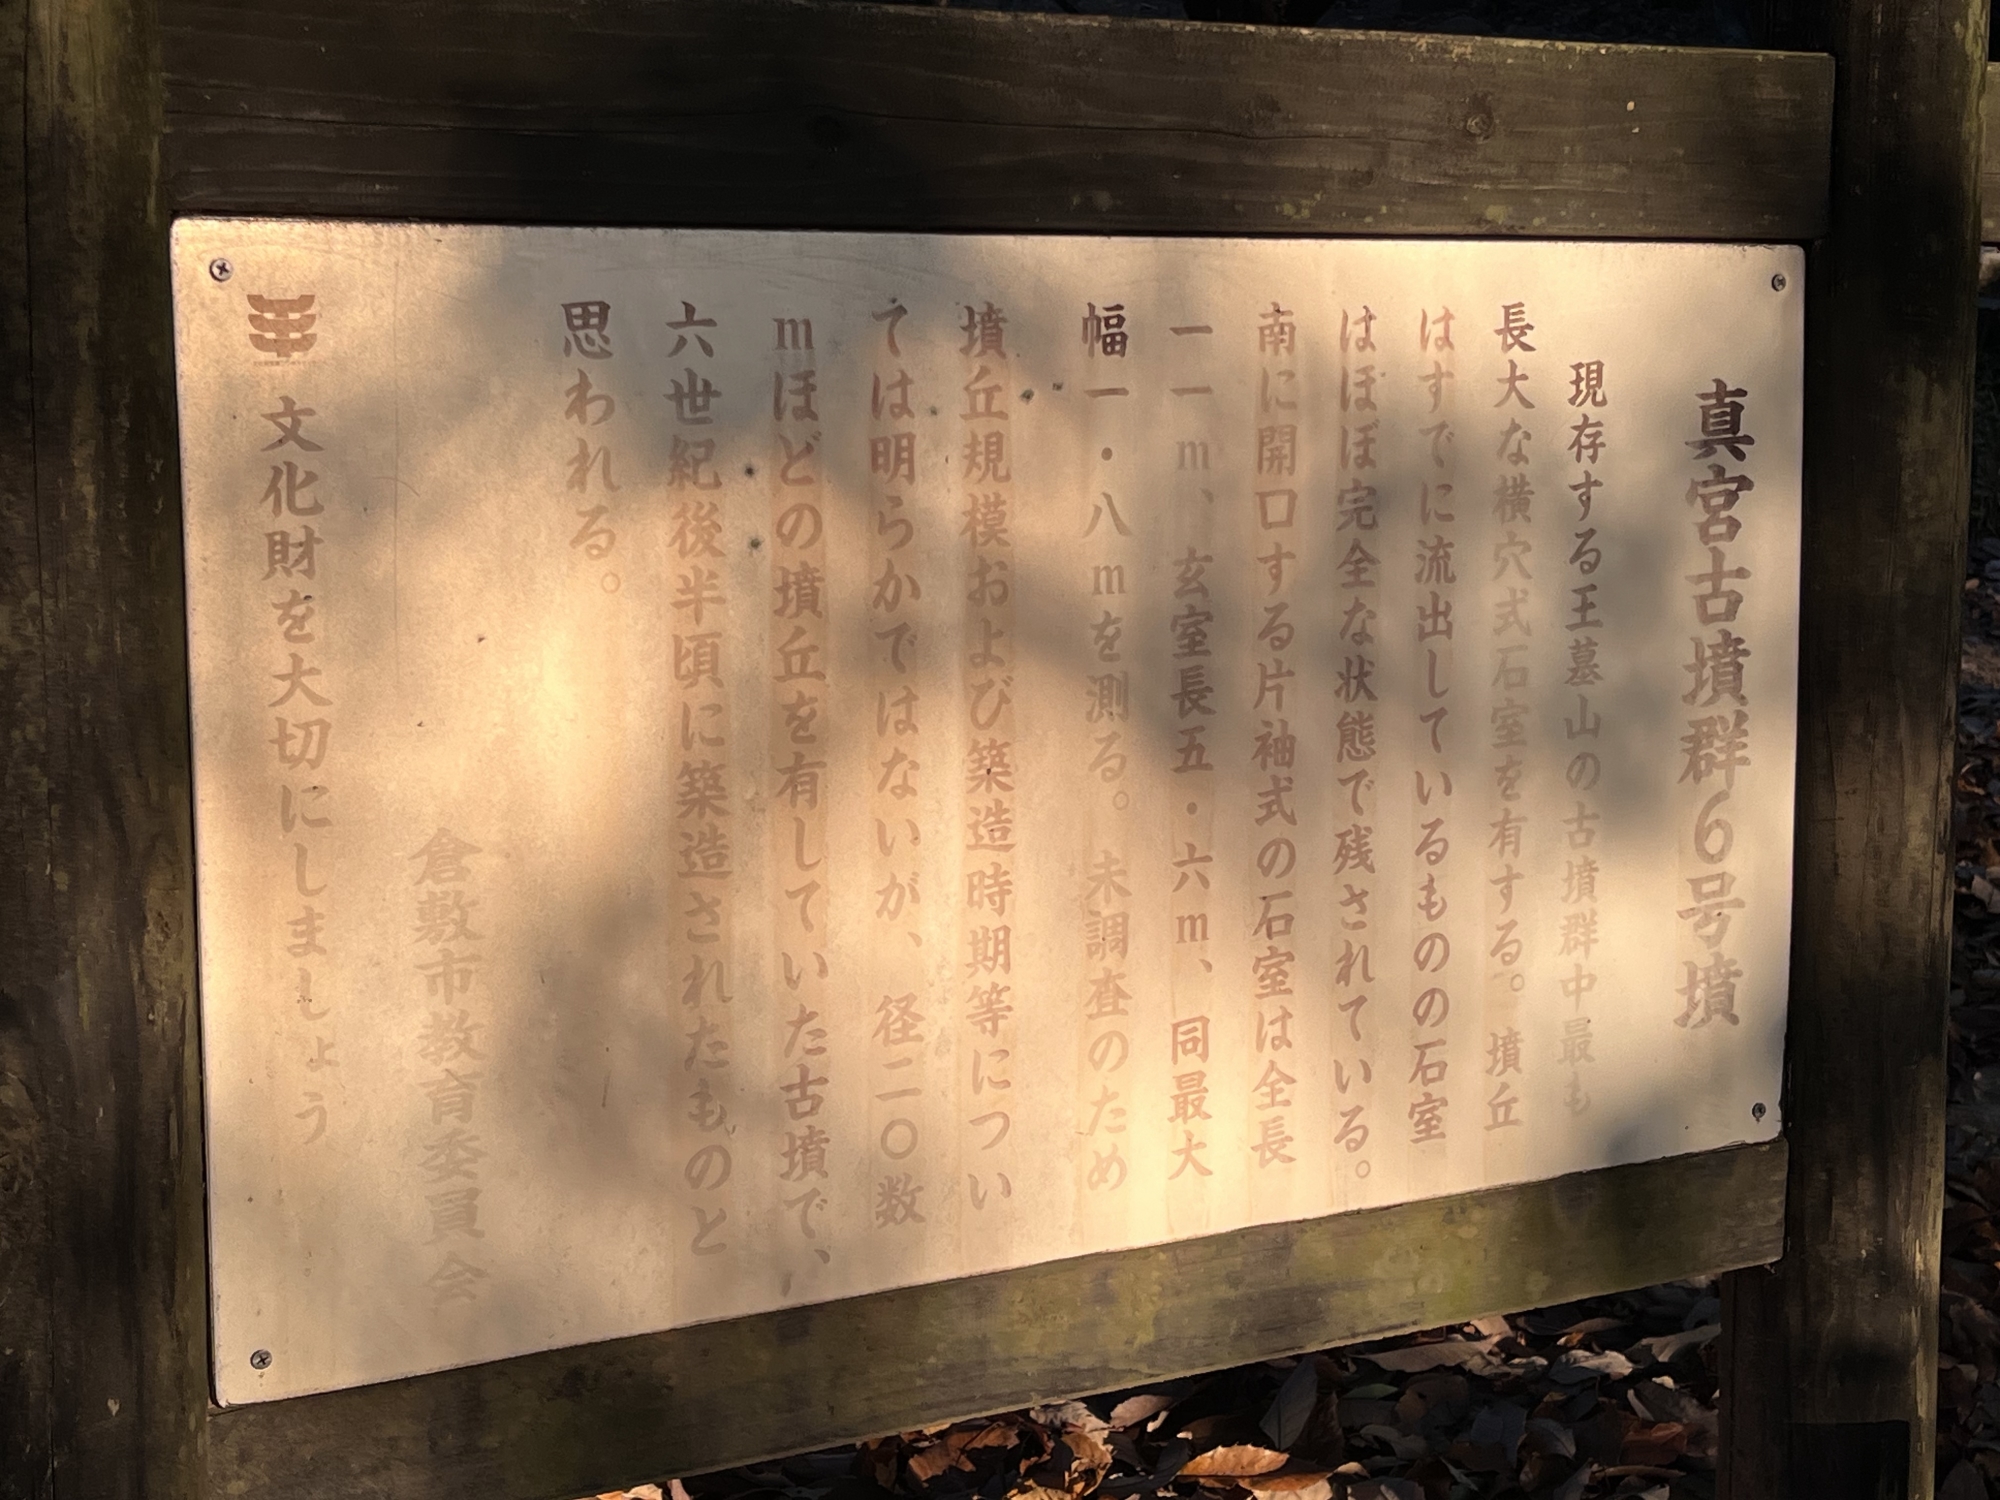 真宮古墳群6号墳
現存する王墓山の古墳群中最も
長大な横穴式石室を有する。墳丘
はすでに流出しているものの石室
はほぼ完全な状態で残されている。
南に開口する片袖式の石室は全長
一一m、玄室長五・六m、同最大
幅一・八mを測る。未調査のため
墳丘規模および築造時期等につい
ては明らかではないが、径二〇数
mほどの墳丘を有していた古墳で、
六世紀後半頃に築造されたものと
思われる。
倉敷市教育委員会
文化財を大切にしましょう